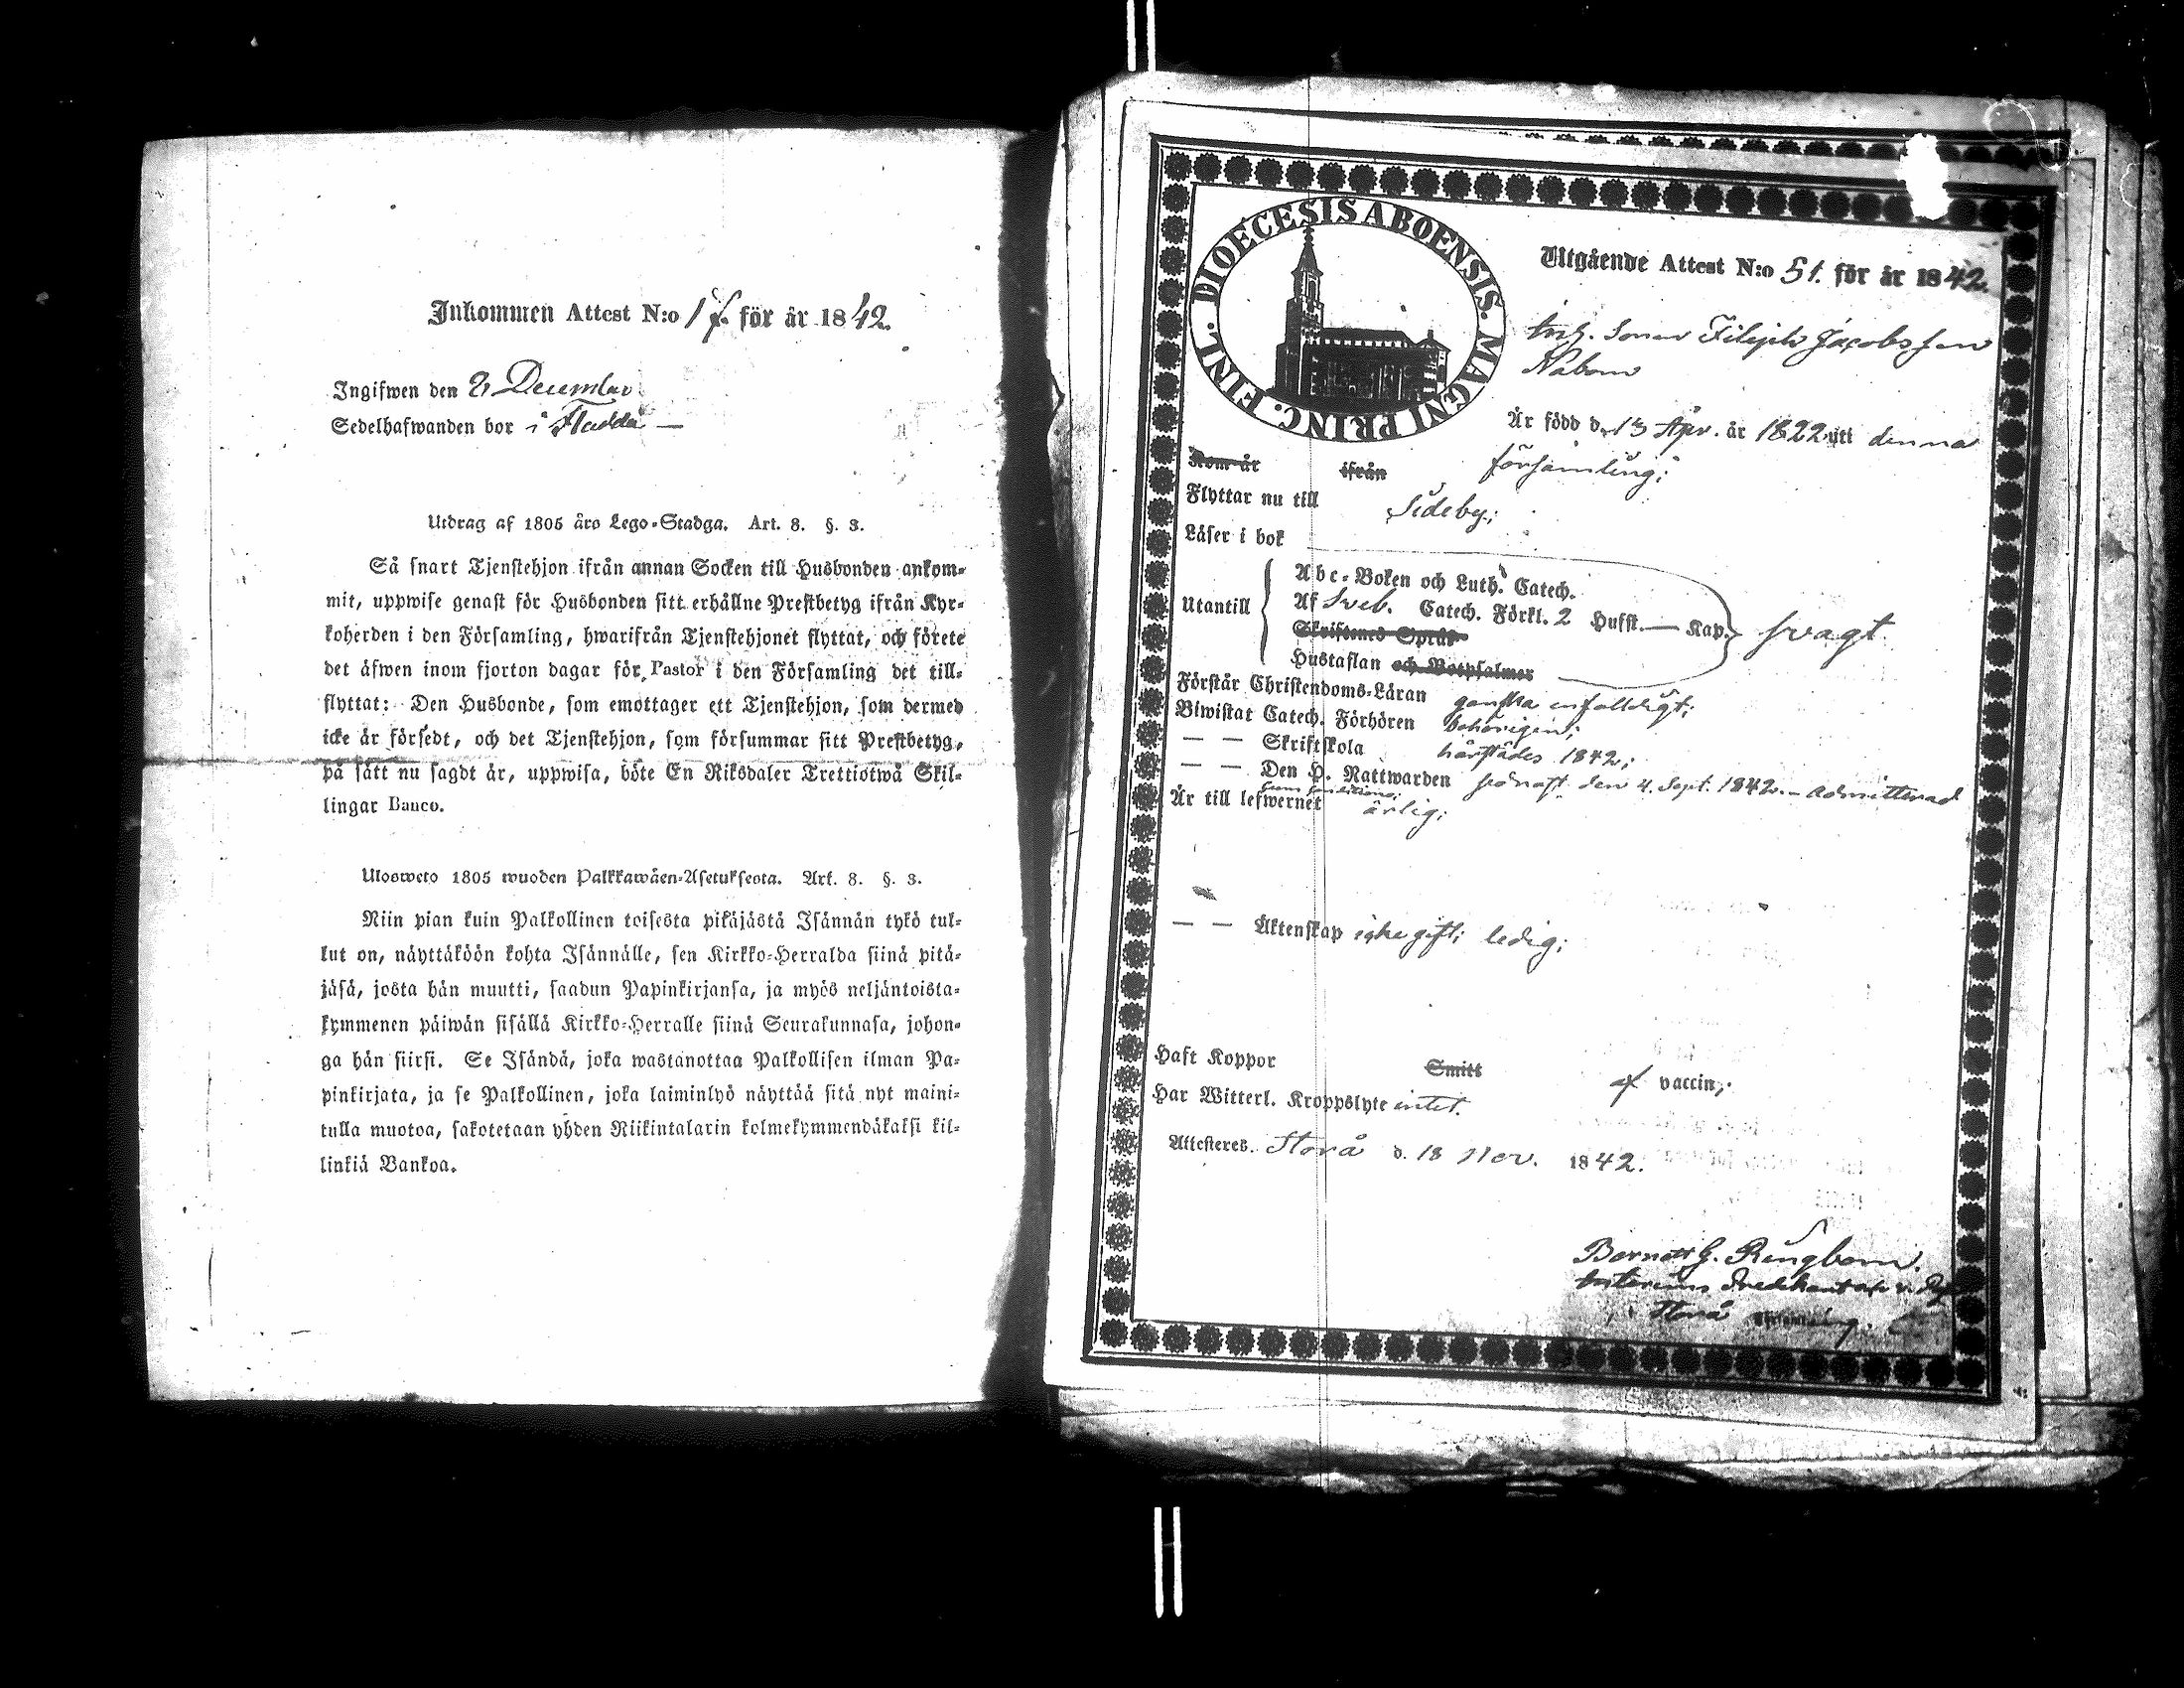 Inkommen Attest N:o 17. för år 1842.
Ingifwen den 2 December
Sedelhafwanden bor i Fladda —
Utdrag af 1805 års Lego-Stadga. Art. 8. §. 3.
Så snart Tjenstehjon ifrån annan Socken till Husbonden ankom-
mit, uppwise genast för Husbonden sitt erhållne Prestbetyg ifrån Kyr-
koherden i den Församling, hwarifrån Tjenstehjonet flyttat, och förete
det äfwen inom fjorton dagar för Pastor i den Församling det till-
flyttat: Den Husbonde, som emottager ett Tjenstehjon, som dermed
icke är försedt, och det Tjenstehjon, som försummar sitt Prestbetyg,
på sätt nu sagdt är, uppwisa, böte En Riksdaler Trettiotwå Skil-
lingar Banco.
Ulosweto 1805 wuoden Palkkawäen-Asetuksesta. Art. 8. §. 3.
Niin pian kuin Palkollinen toisesta pitäjästä Isännän tykö tul-
lut on, näyttäköön kohta Isännälle, sen Kirkko-Herralda siinä pitä-
jäsä, josta hän muutti, saadun Papinkirjansa, ja myös neljäntoista-
kymmenen päiwän sisällä Kirkko-Herralle siinä Seurakunnasa, johon-
ga hän siirsi. Se Isändä, joka wastanottaa Palkollisen ilman Pa-
pinkirjata, ja se Palkollinen, joka laiminlyö näyttää sitä nyt maini-
tulla muotoa, sakotetaan yhden Riikintalarin kolmekymmendäkaksi kil-
linkiä Bankoa.
DIOECESIS ABOENSIS. MAGNI PRINC. FINL.
Utgående Attest N:o 51. för år 1842.
Sonen Jacobsson
Är född d. 13 Apr. år 1822 uti denna
församling;
Kom år ifrån
Flyttar nu till Sideby;
Läser i bok
Abc-Boken och Luth. Catech.
Utantill Af Sveb. Catech. Förkl. 2 Husst. — Kap. svagt
Skriftenes Språk
Hustaflan och Botpsalmer
Förstår Christendoms-Läran ganska enfalldigt;
Biwistat Catech. Förhören behörigen;
— — Skriftskola härstädes 1842;
— — Den H. Nattwarden senast den 4. Sept. 1842. — admitterad
Är till lefwernet ärlig;
— — Äktenskap icke gift; ledig;
Haft Koppor Smitt af vaccin;
Har Witterl. Kroppslyte intet.
Attesteres. Storå d. 18 Nov. 1842.
G. Ringbom.
Storå Församling.